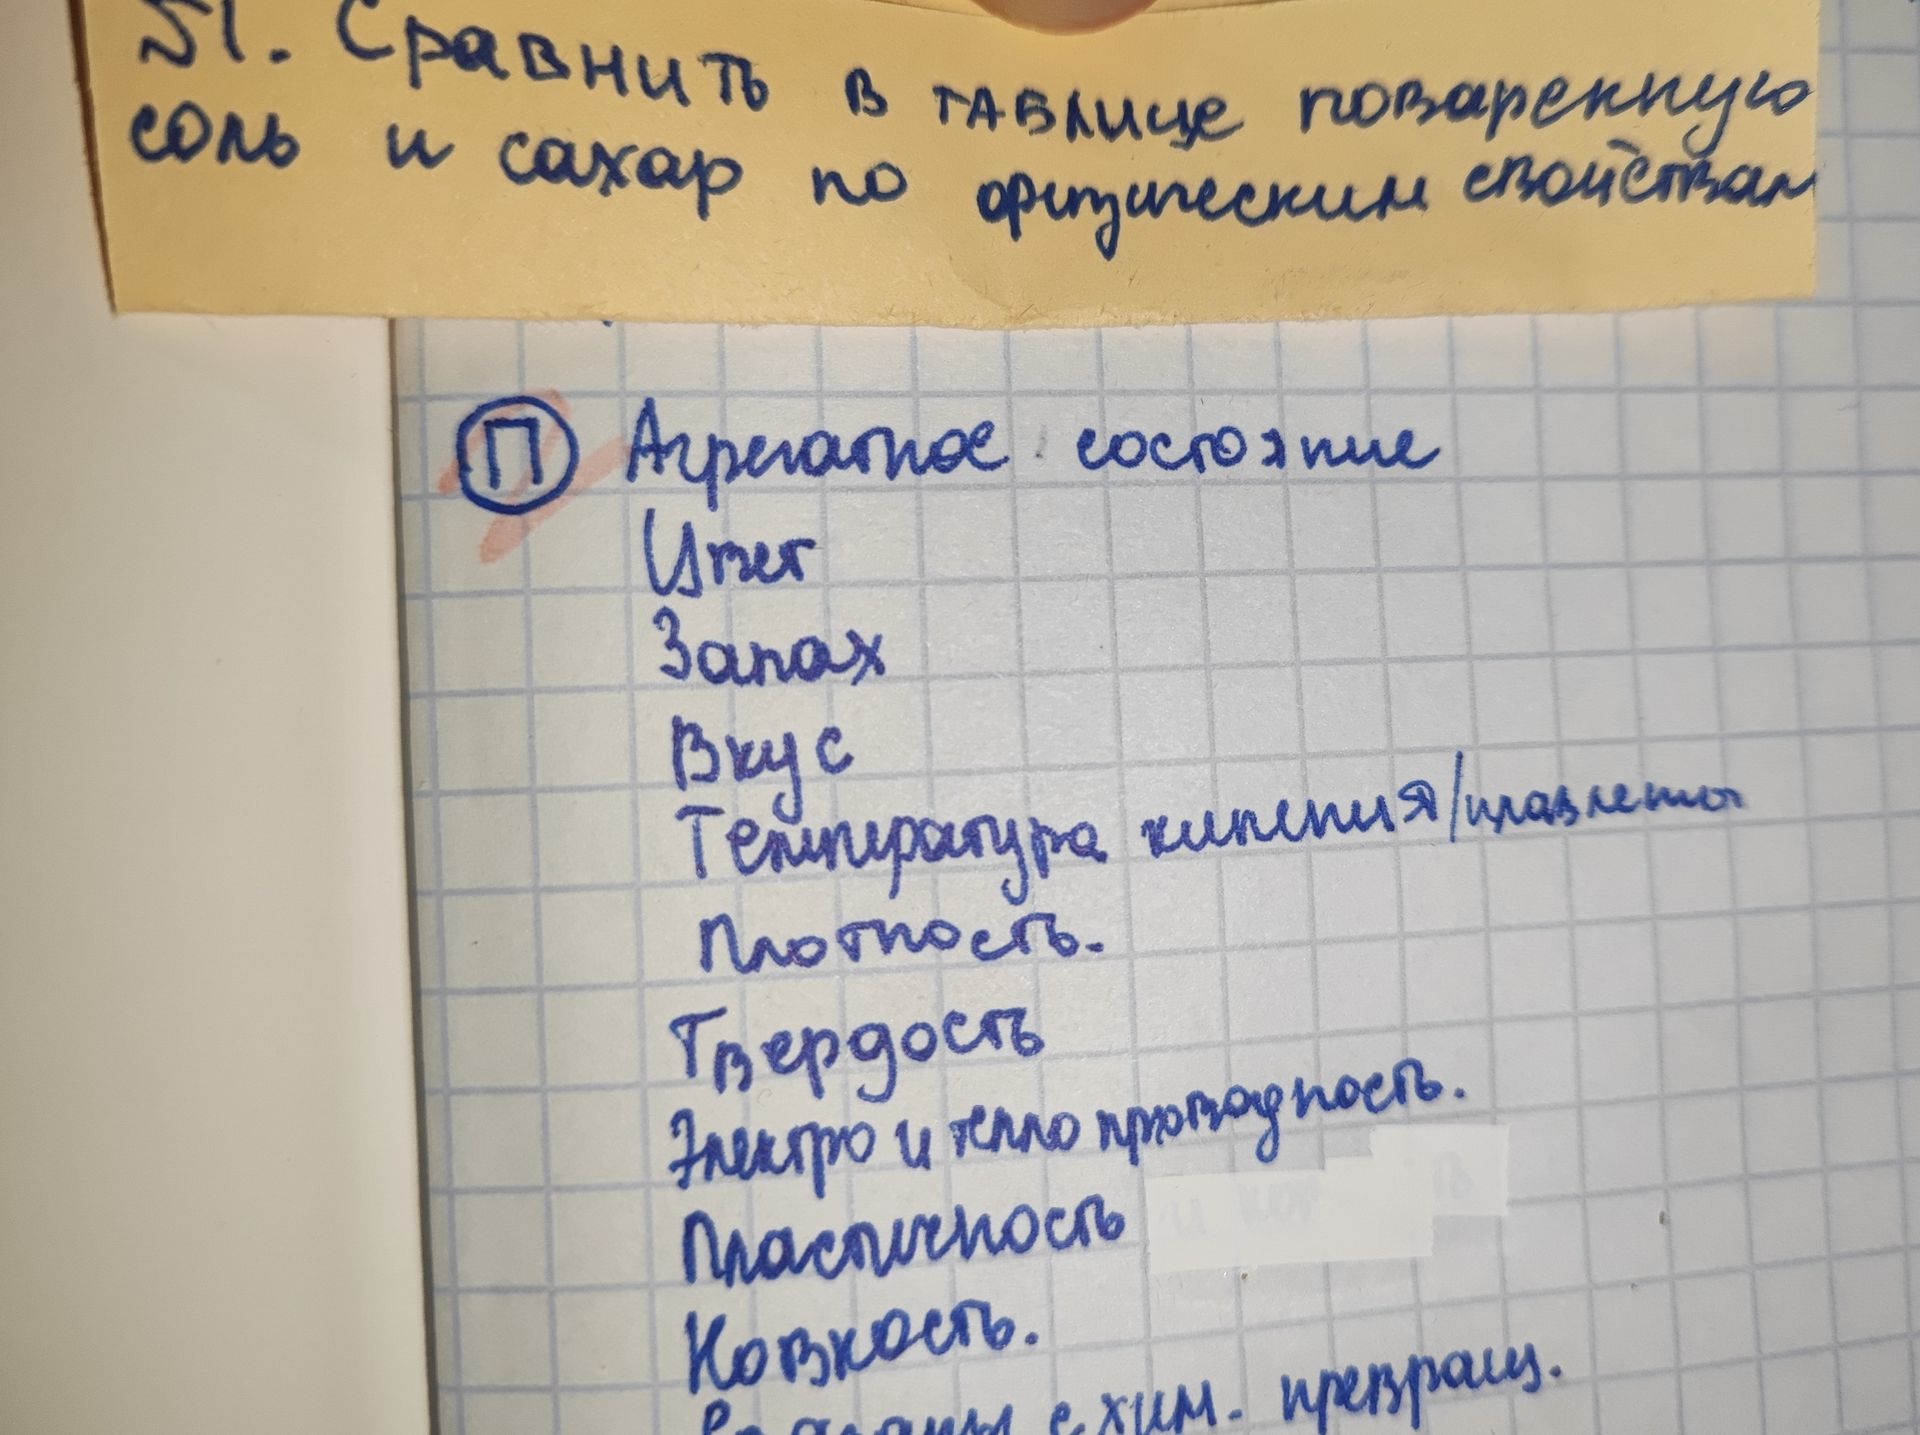 51. Сравнить в таблице поваренную
соль и сахар по физическим свойствам
П Агрегатное состояние
Цвет
Запах
Вкус
Температура кипения/плавления
Плотность.
Твердость
Электро и тепло проводность.
Пластичность
Ковкость.
с хим. превращ.